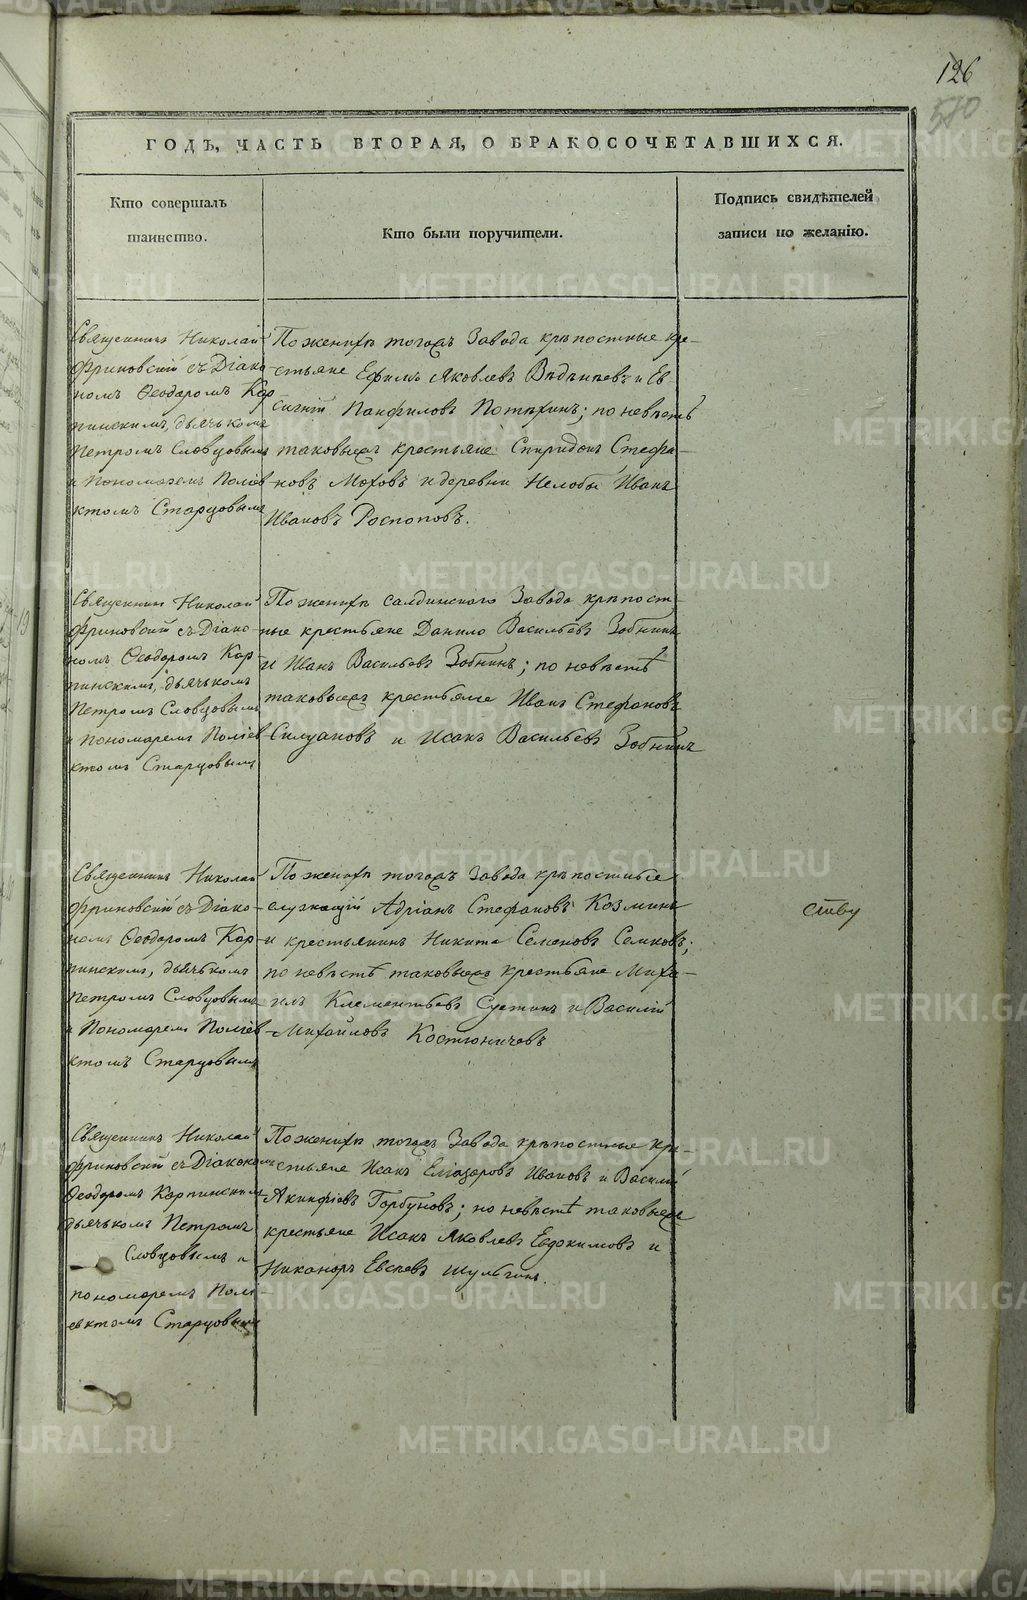 126
570
ГОДЪ, ЧАСТЬ ВТОРАЯ, О БРАКОСОЧЕТАВШИХСЯ.
Кто совершалъ
таинство.
Кто были поручители.
Подпись свидѣтелей
записи по желанію.
Священникъ Николай
Фриновскій съ Діако-
номъ Ѳеодоромъ Кар
пинскимъ, дьячькомъ
Петромъ Словцовымъ
и Пономаремъ Поліев
ктомъ Старцовымъ
По женихѣ тогожъ Завода крѣпостные кре-
стьяне Ефимъ Яковлевъ и Ев
сигній Панфиловъ Потѣхинъ; по невѣстѣ
таковыежъ крестьяне Спиридонъ Стефа-
новъ Моховъ и деревни Нелобы Иванъ
Ивановъ Роспоповъ.
Священникъ Николай
Фриновскій съ Діако-
номъ Ѳеодоромъ Кар-
пинскимъ, дьячькомъ
Петромъ Словцовымъ
и Пономаремъ Поліев-
ктомъ Старцовымъ
По женихѣ Салдинскаго Завода крѣпост-
ные крестьяне Данило Васильевъ Зобнинъ
и Иванъ Васильевъ Зобнинъ; по невѣстѣ
таковыежъ крестьяне Иванъ Стефановъ
Силуановъ и Исакъ Васильевъ Зобнинъ
Священникъ Николай
Фриновскій съ Діако-
номъ Ѳеодоромъ Кар-
пинскимъ, дьячькомъ
Петромъ Словцовымъ
и Пономаремъ Поліев-
ктомъ Старцовымъ
По женихѣ тогожъ Завода крѣпостные
служащій Адріанъ Стефановъ Козминъ
и крестьянинъ Никита Семеновъ Семковъ;
по невѣстѣ таковыежъ крестьяне Миха-
илъ Клементьевъ Суетинъ и Василій
Михайловъ Костюничевъ
ству
Священникъ Николай
Фриновскій съ Діакономъ
Ѳеодоромъ Карпинскимъ
дьячькомъ Петромъ
Словцовымъ и
пономаремъ Полі-
евктомъ Старцовымъ
По женихѣ тогожъ Завода крѣпостные кре-
стьяне Исакъ Еліазаровъ Ивановъ и Василій
Акинфіевъ Горбуновъ; по невѣстѣ таковыежъ
крестьяне Исакъ Яковлевъ Евдокимовъ и
Никаноръ Евсеевъ Шульгинъ.